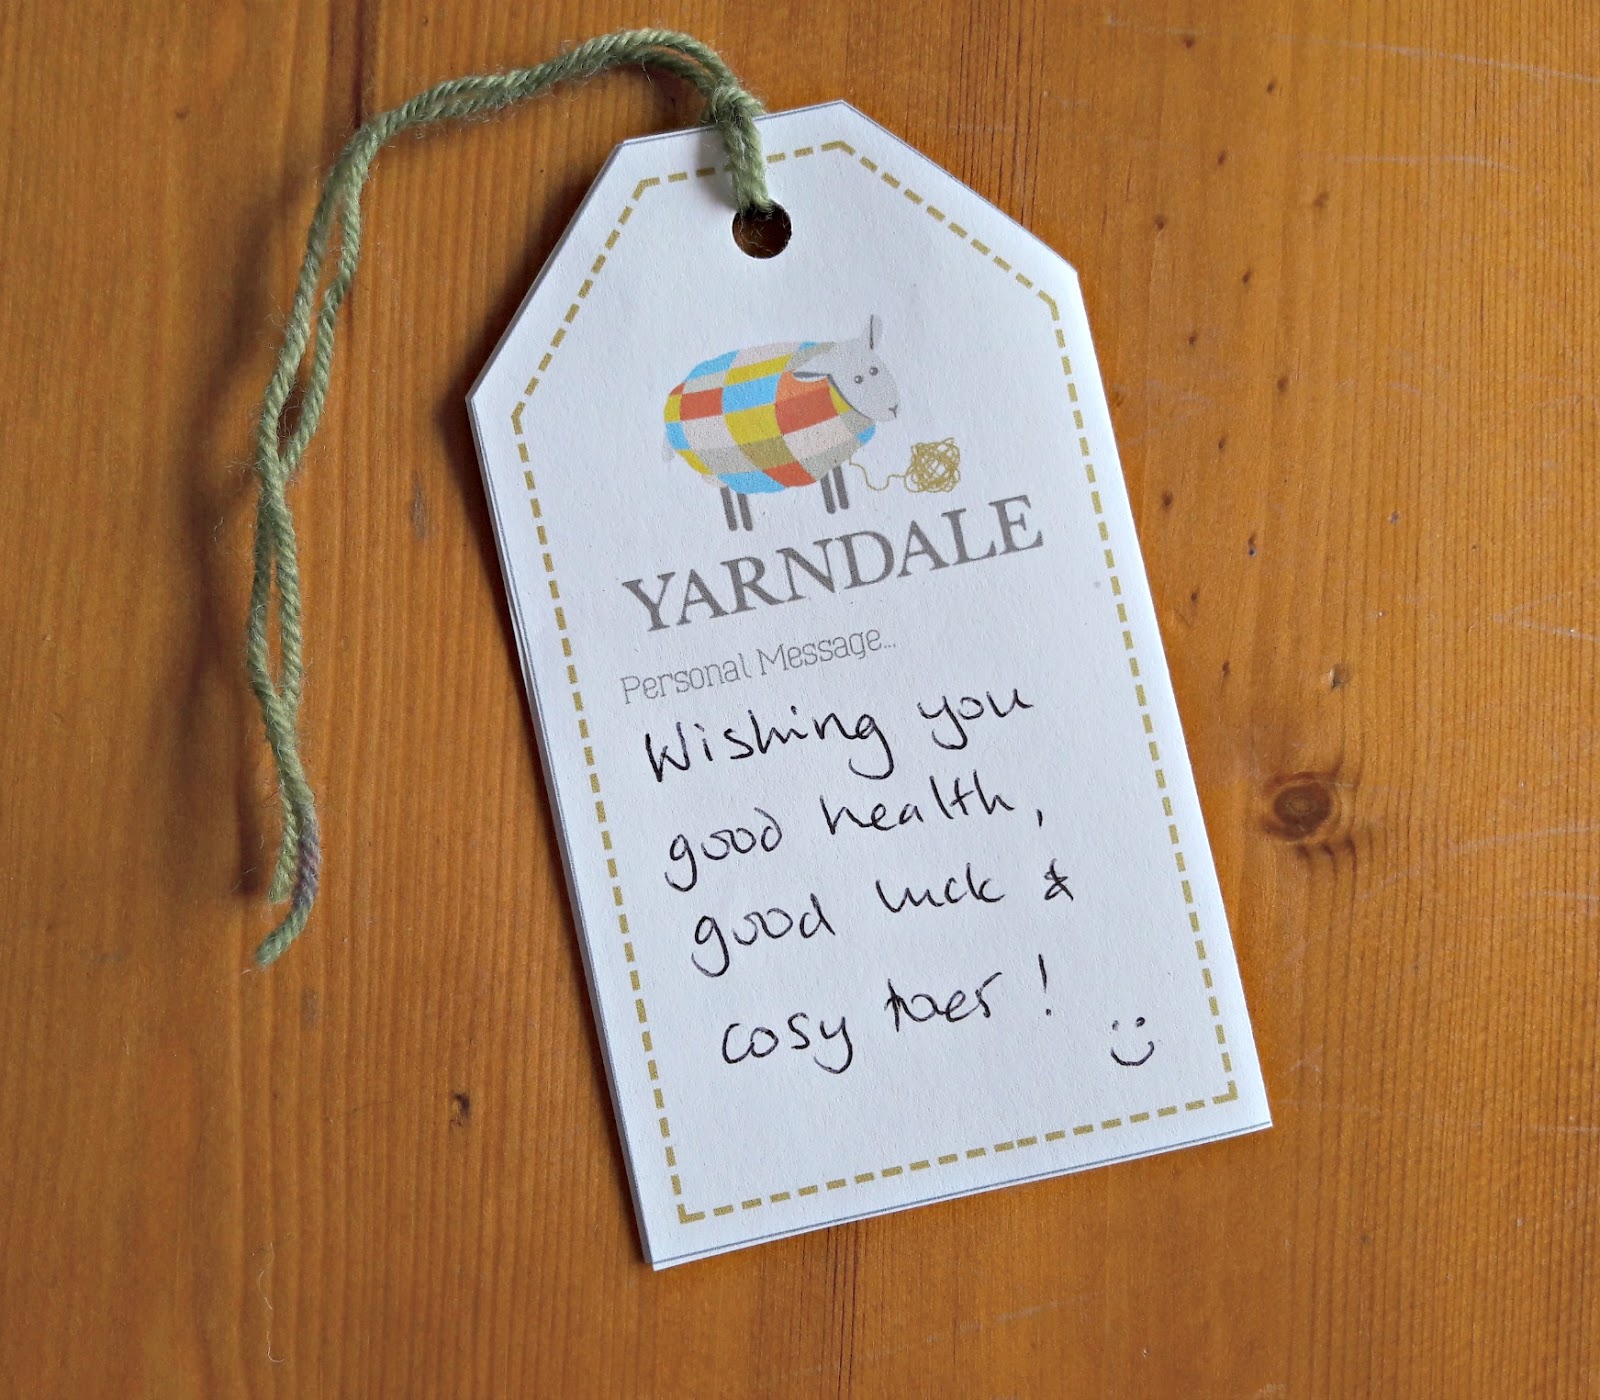 YARNDALE
Personal Message...
Wishing you
good health,
good luck &
cosy toes!